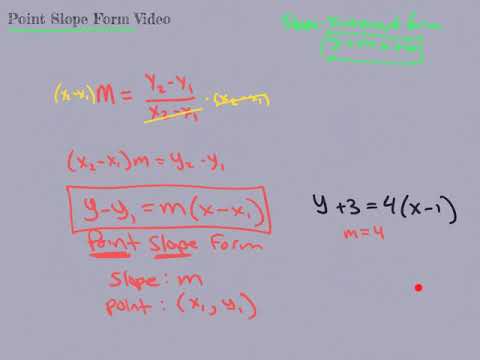 Point Slope Form Video
Slope-Intercept form
y = mx + b
(x₂-x₁) m = (y₂-y₁)/(x₂-x₁) · (x₂-x₁)
(x₂-x₁)m = y₂-y₁
y-y₁ = m(x-x₁)
Point Slope Form
slope: m
point: (x₁, y₁)
y+3=4(x-1)
m=4